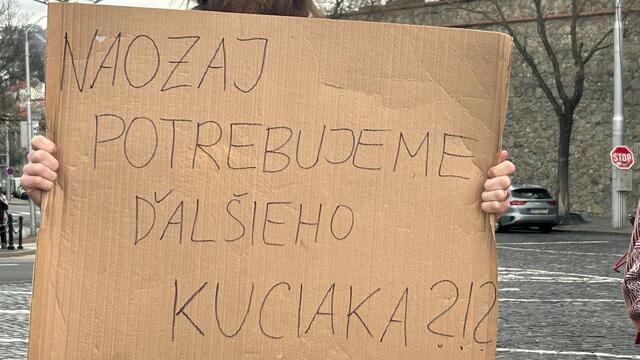 NAOZAJ
POTREBUJEME
ĎALŠIEHO
KUCIAKA?!?
STOP